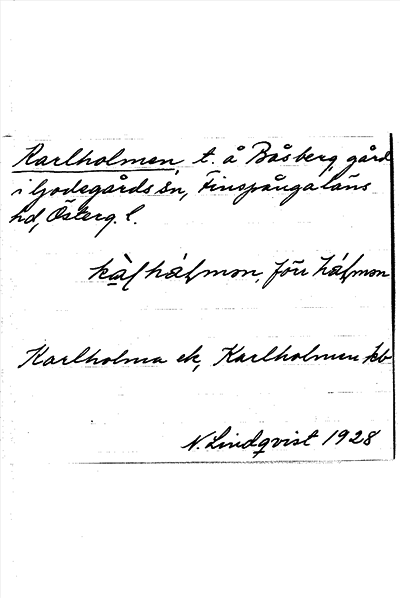 Karlholmen, t. å Båsberg, gård
i Godegårds sn, Finspånga läns
hd, Österg. l.
Karlholma ek, Karlholmen kb
N. Lindqvist 1928